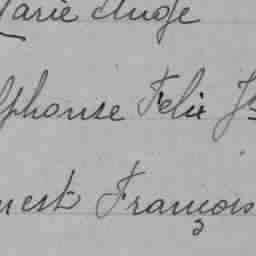 Marie Ange
lphonse Felix Js
nest François